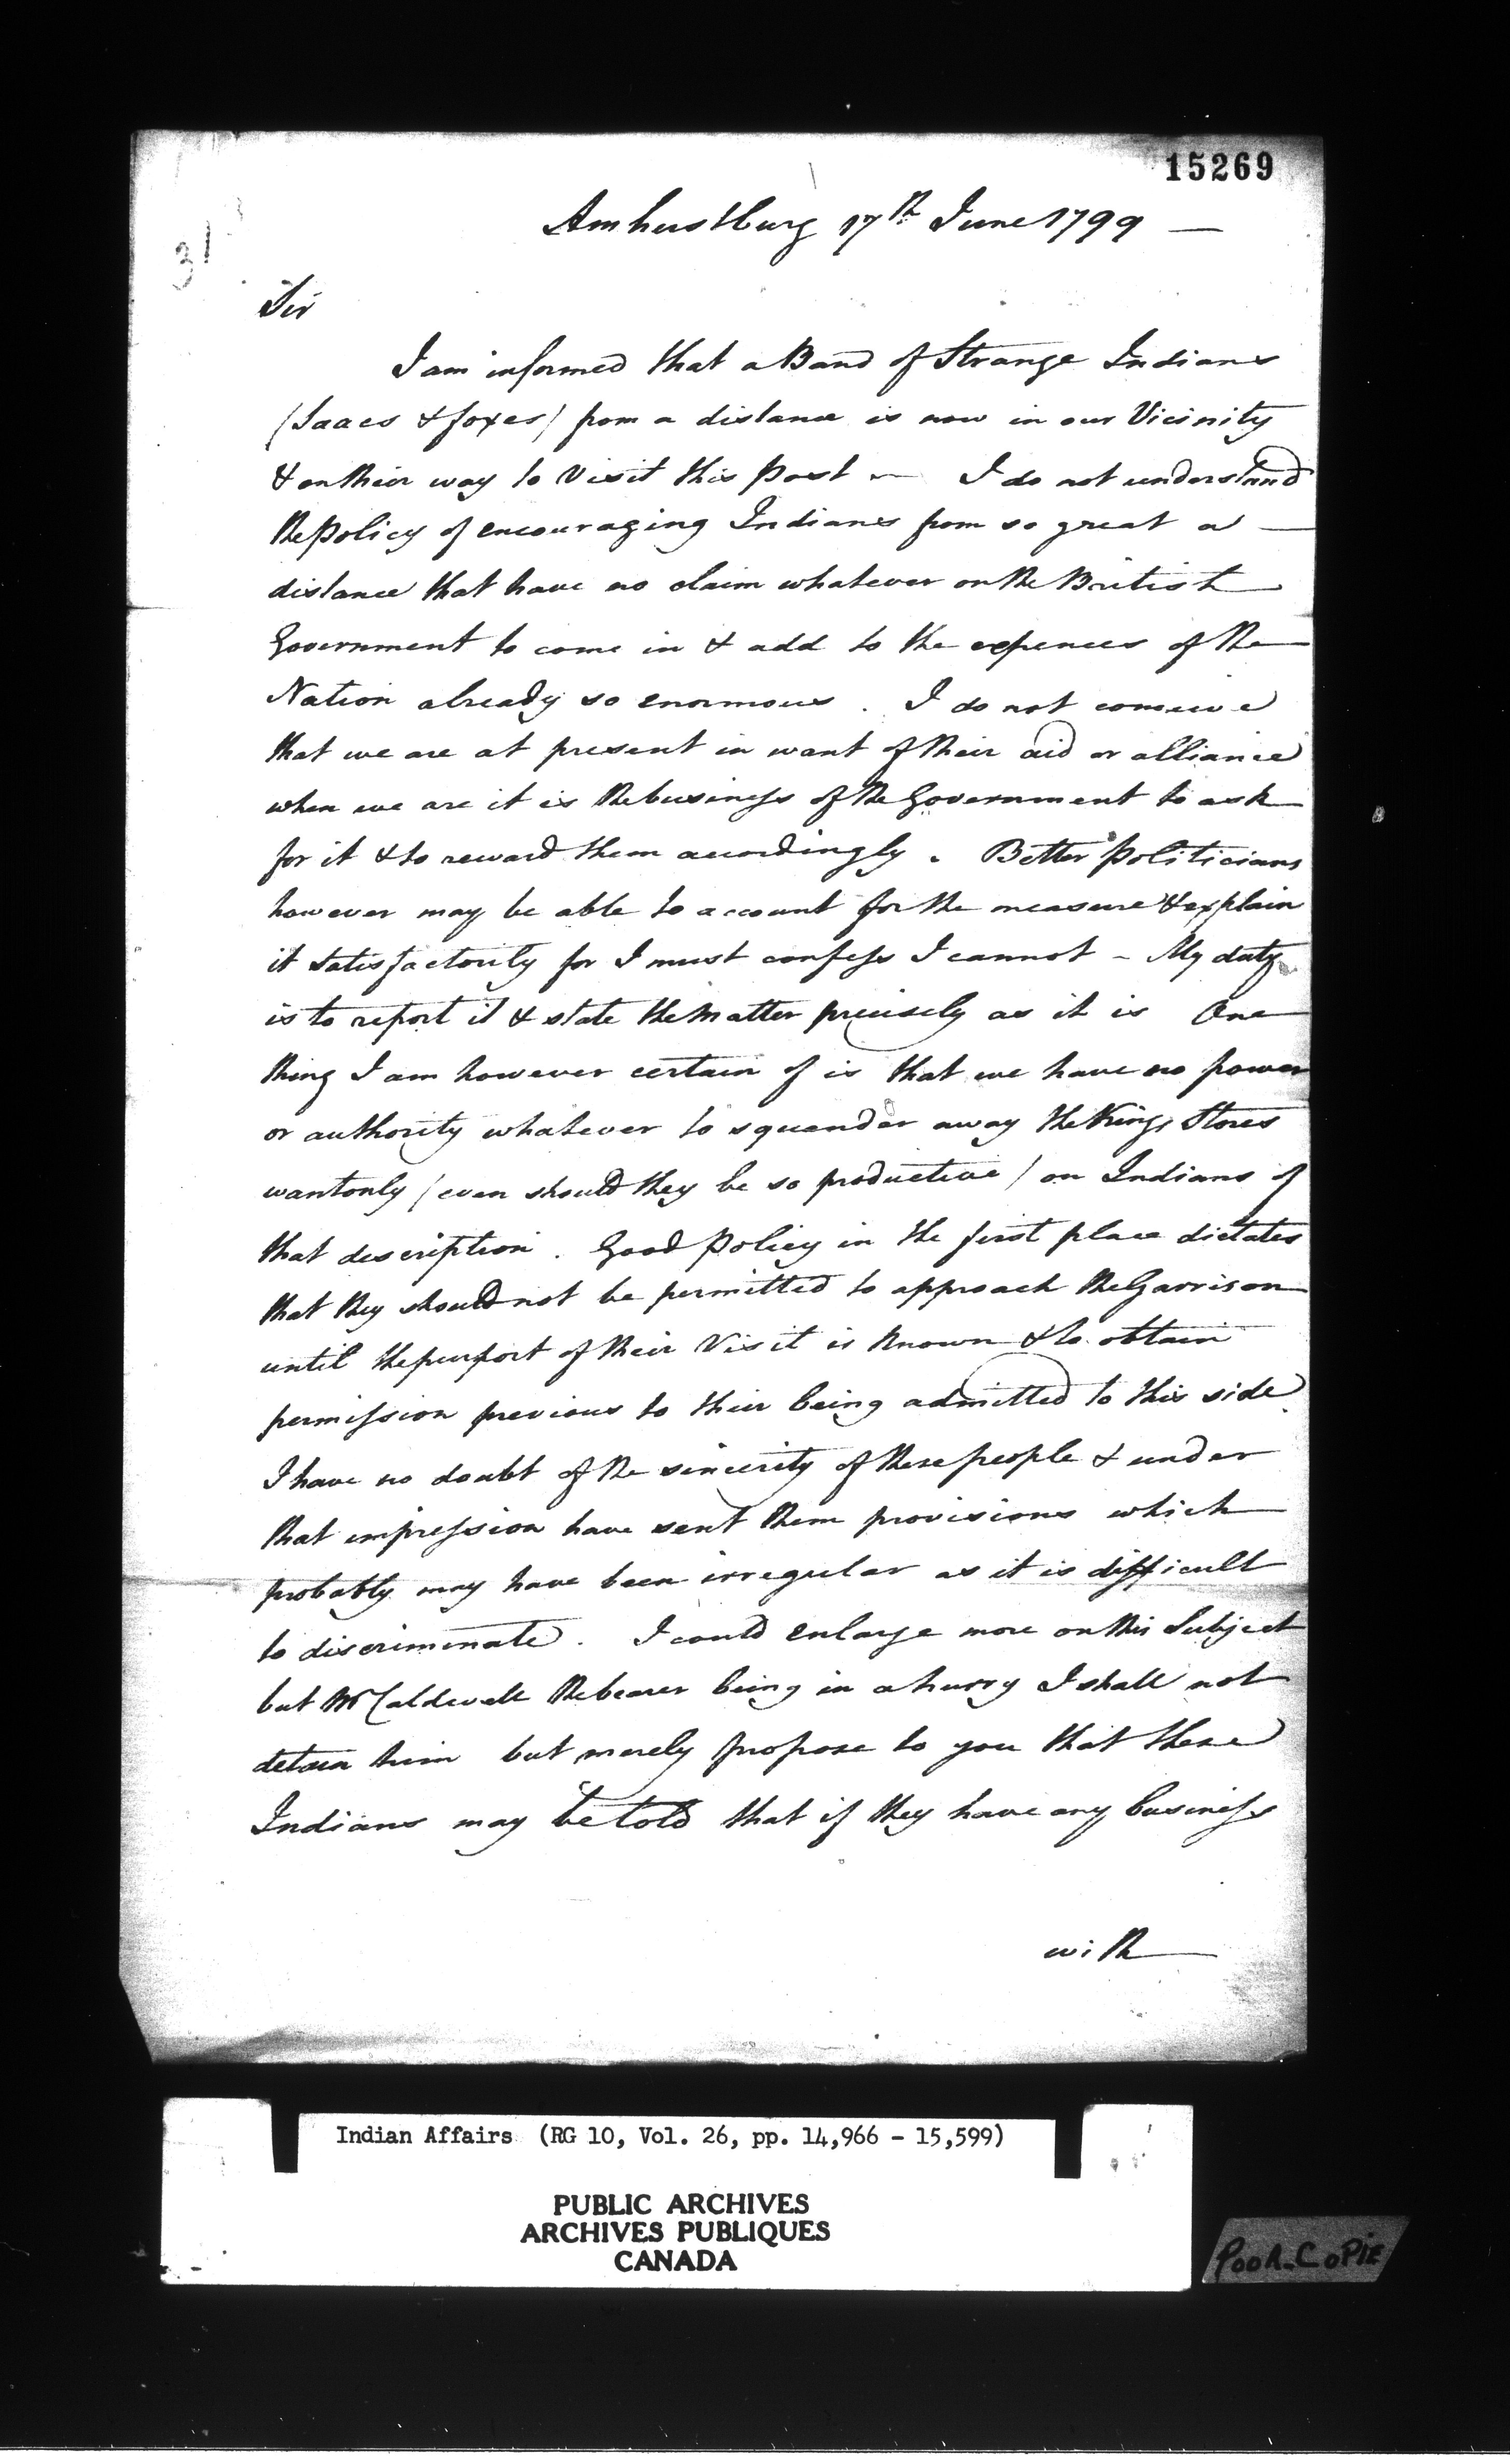 15269
31
Amherstburg 17th June 1799 —
Sir
I am informed that a Band of Strange Indians
(Saacs & foxes) from a distance is now in our Vicinity
& on their way to visit this Post — I do not understand
the Policy of encouraging Indians from so great a —
distance that have no claim whatever on the British
Government to come in & add to the expences of the
Nation already so enormous . I do not conceive
that we are at present in want of their aid or alliance
when we are it is the business of the Government to ask
for it & to reward them accordingly . Better Politicians
however may be able to account for the measure & explain
it satisfactorily for I must confess I cannot – My duty
is to report it & state the matter precisely as it is One
thing I am however certain of is that we have no power
or authority whatever to squander away the Kings Stores
wantonly (even should they be so productive) on Indians of
that description . Good Policy in the first place dictates
that they should not be permitted to approach the Garrison
until the purport of their Visit is known & to obtain
permission previous to their being admitted to this side.
I have no doubt of the sincerity of these people & under
that impression have sent them provisions which
probably may have been irregular as it is difficult
to discriminate . I could enlarge more on this Subject
but Mr Caldwell the bearer being in a hurry I shall not
detain him but merely propose to you that these
Indians may be told that if they have any business
with
Indian Affairs (RG 10, Vol. 26, pp. 14,966 - 15,599)
PUBLIC ARCHIVES
ARCHIVES PUBLIQUES
CANADA
POOR COPIE